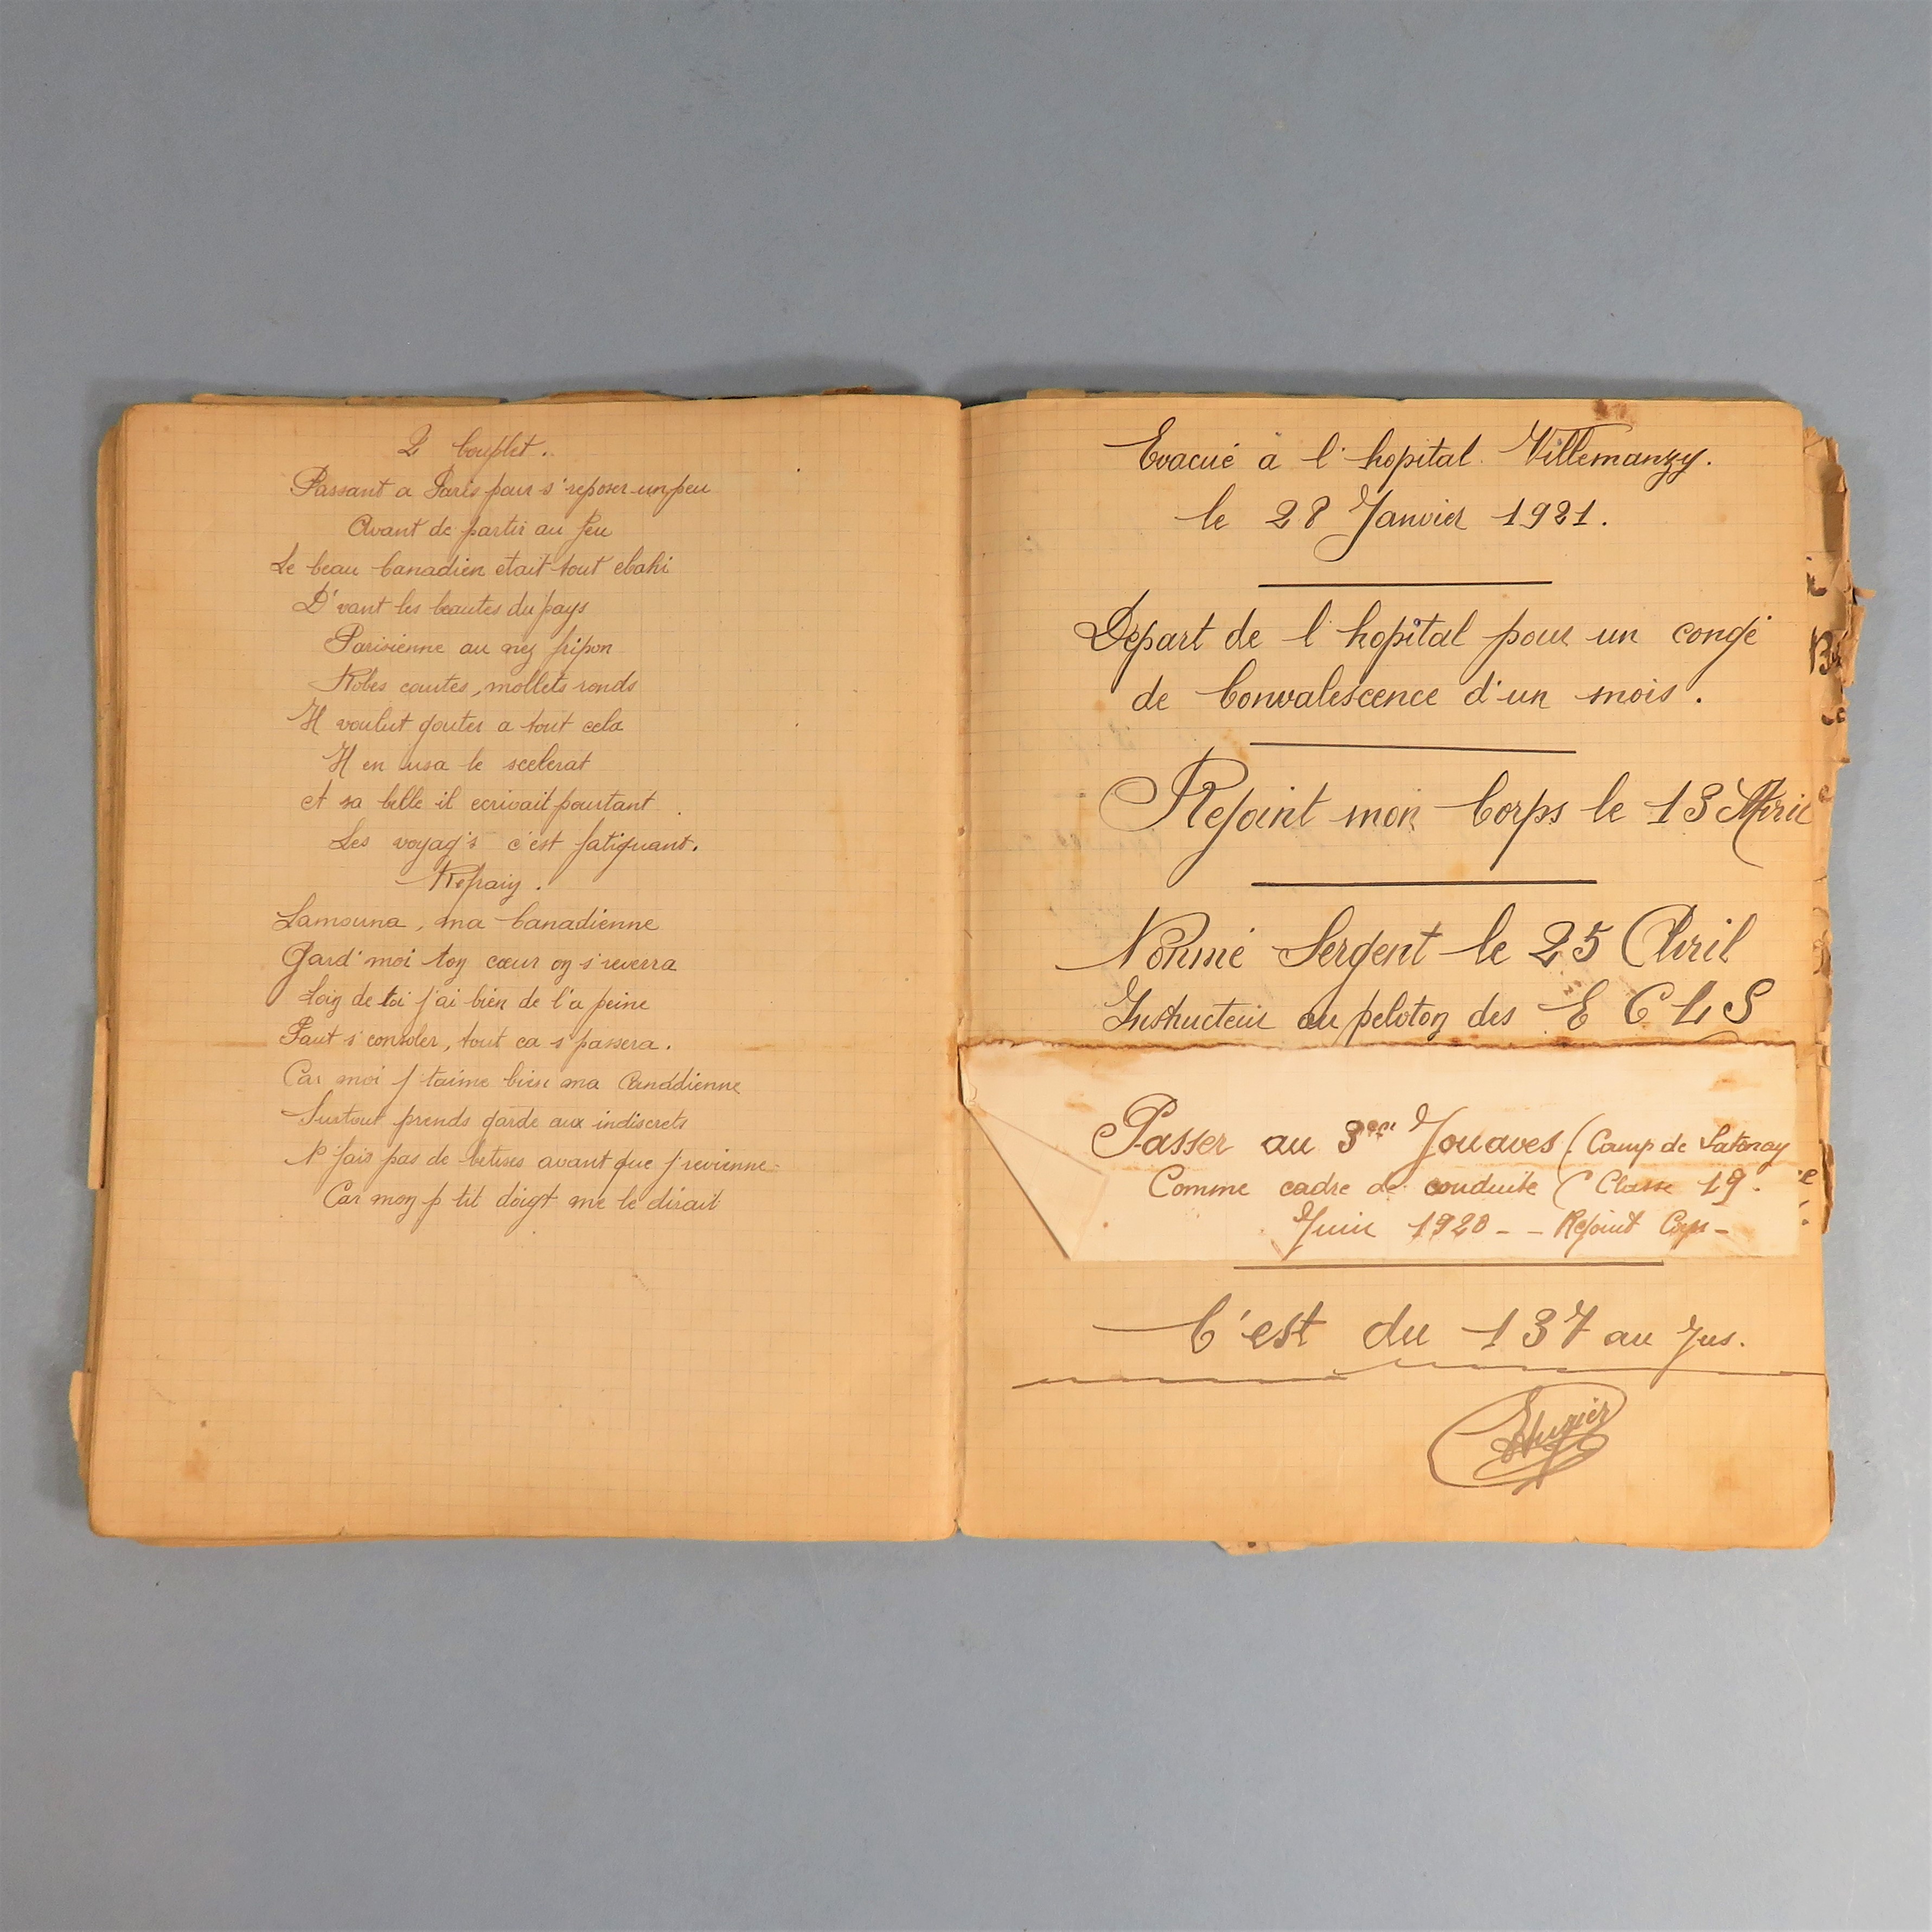 2 Couplet.
Passant a Paris pour s'reposer un peu
Avant de partir au feu
Le beau Canadien etait tout ebahi
D'vant les beautes du pays
Parisienne au nez fripon
Robes courtes, mollets ronds
Il voulut gouter a tout cela
Il en usa le scelerat
et sa belle il ecrivait pourtant
Les voyag's c'est fatiguant.
Refrain.
Lamouna, ma Canadienne
Gard' moi ton cœur on s'reverra
Loin de toi j'ai bien de l'a peine
Faut s'consoler, tout ca s'passera.
Car moi j'taime bien ma Canadienne
Surtout prends garde aux indiscrets
N'fais pas de betises avant que j'revienne
Car mon p'tit doigt me le dirait
Evacué à l'hopital Villemanzy.
le 28 Janvier 1921.
Départ de l'hopital pour un congé
de Convalescence d'un mois.
Rejoint mon Corps le 13 Avril
Nommé Sergent le 25 Avril
Instructeur au peloton des E C L S
Passer au 3eme Zouaves (Camp de Satonay
Comme cadre de conduite (Classe 19.
Juin 1920 - - Rejoint Corps -
C'est du 137 au Jus.